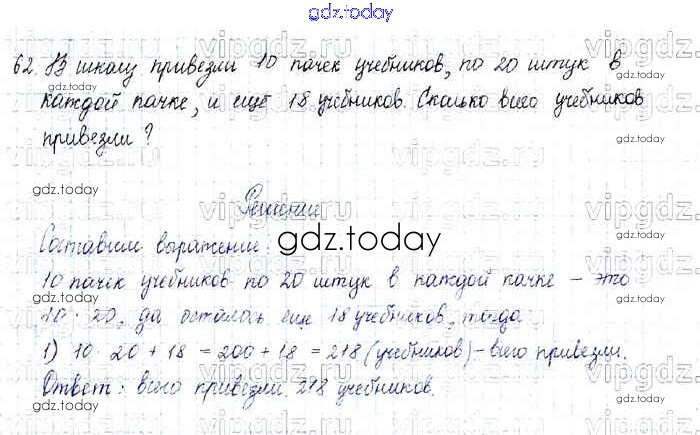 gdz.today
62. В школу привезли 10 пачек учебников, по 20 штук в
каждой пачке, и ещё 18 учебников. Сколько всего учебников
привезли?
gdz.today
gdz.today
Решение
Составим выражение:
gdz.today
10 пачек учебников по 20 штук в каждой пачке – это
10 · 20, да осталось еще 18 учебников, тогда
1) 10 · 20 + 18 = 200 + 18 = 218 (учебников) – всего привезли.
Ответ: всего привезли 218 учебников.
gdz.today
gdz.today
gdz.today